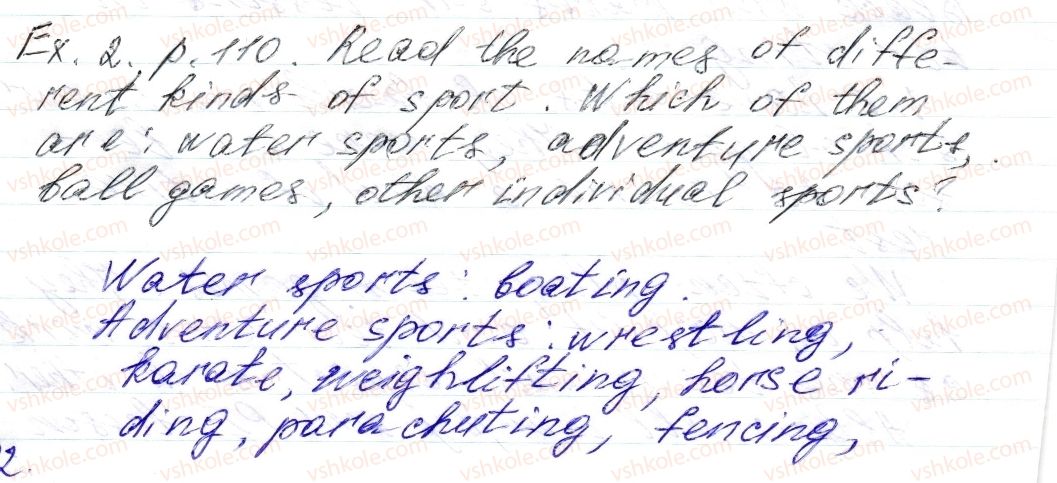 Ex. 2. p. 110. Read the names of diffe-
rent kinds of sport. Which of them
are: water sports, adventure sports,
ball games, other individual sports?
Water sports: boating.
Adventure sports: wrestling,
karate, weighlifting, horse ri-
ding, parachuting, fencing,
2.